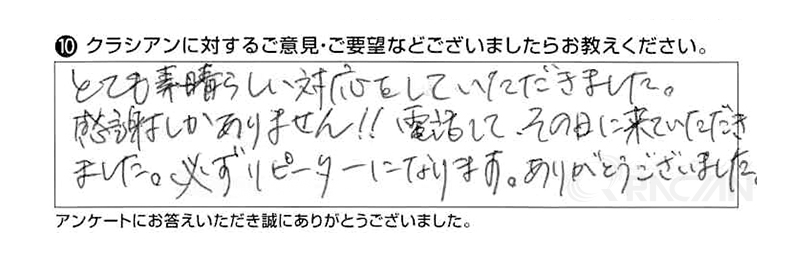 ⑩ クラシアンに対するご意見・ご要望などございましたらお教えください。
とても素晴らしい対応をしていただきました。
感謝しかありません!! 電話して、その日に来ていただき
ました。必ずリピーターになります。ありがとうございました。
アンケートにお答えいただき誠にありがとうございました。